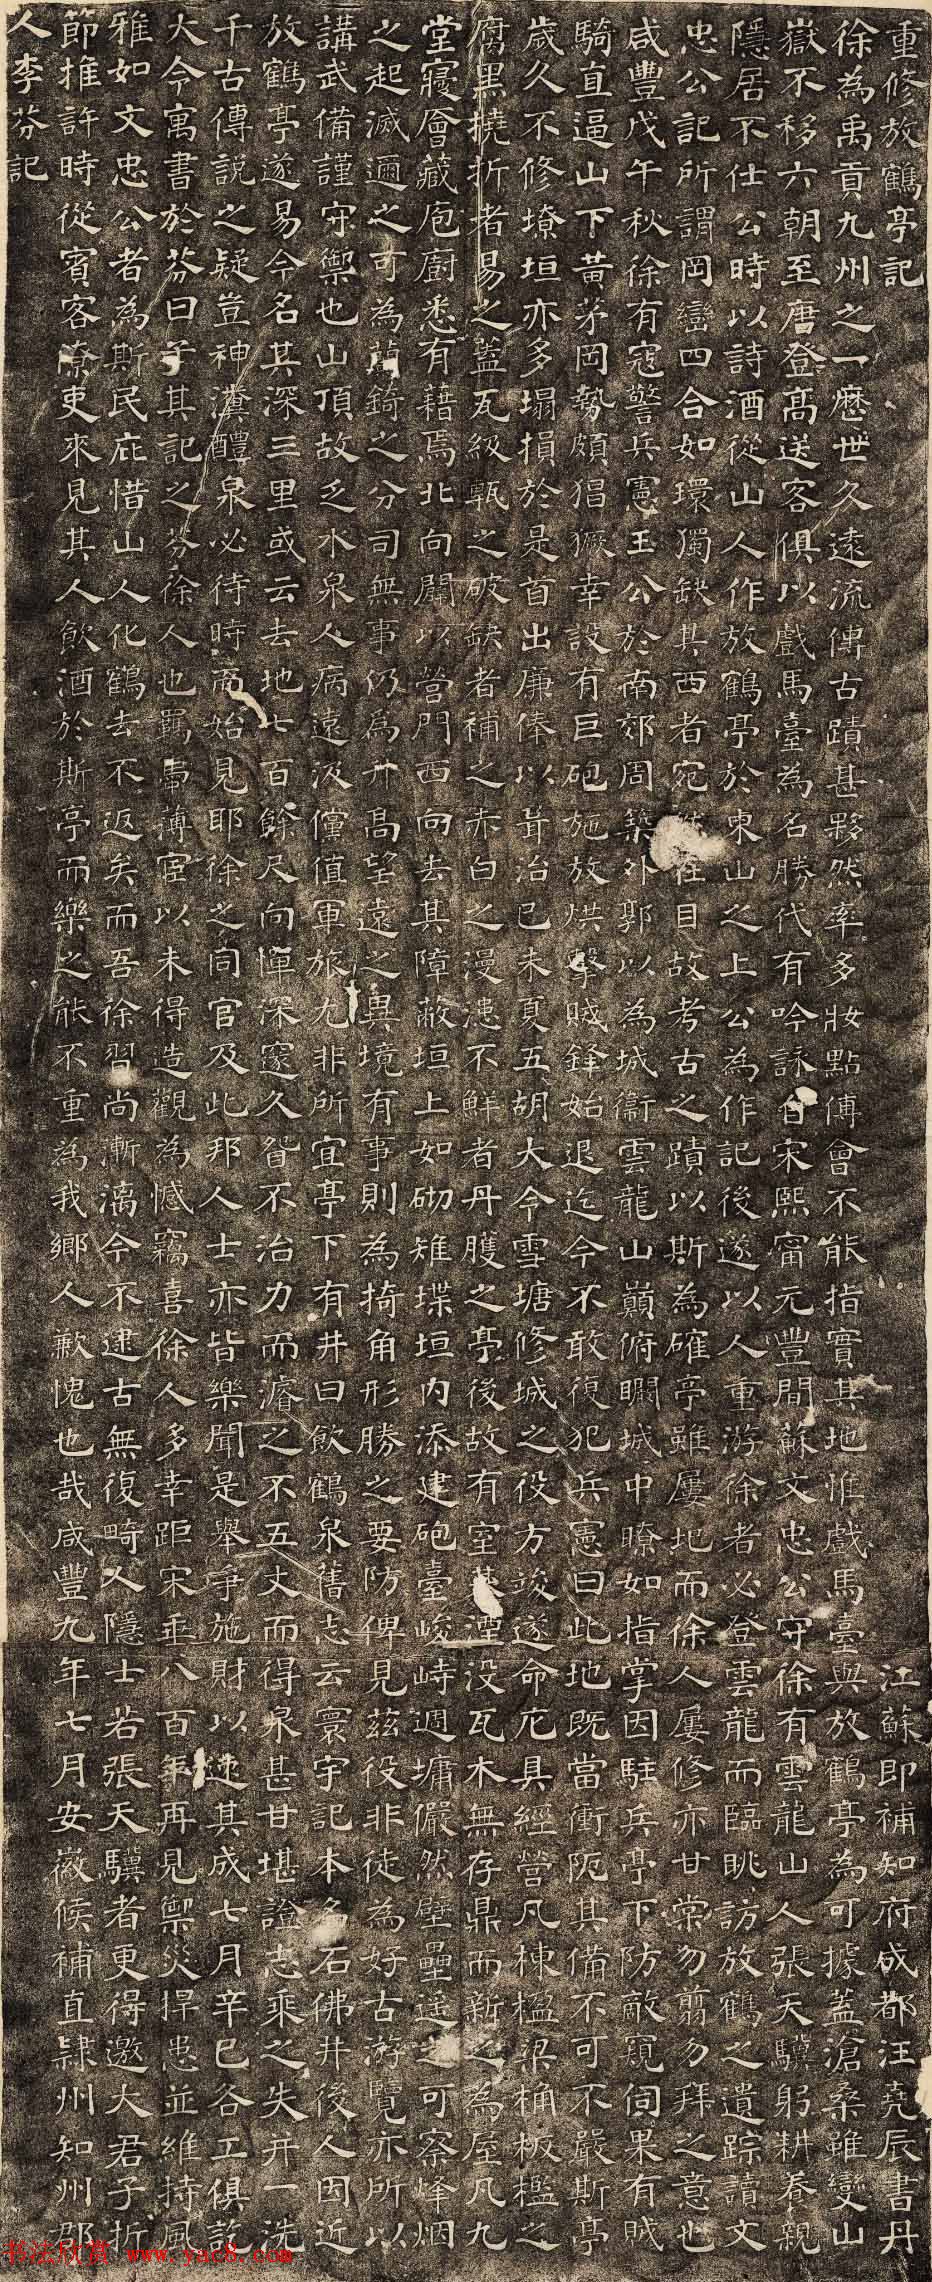 重修放鶴亭記 江蘇即補知府成都汪堯辰書丹
徐為禹貢九州之一歷世久遠流傳古蹟甚夥然率多妝點傅會不能指實其地惟戲馬臺與放鶴亭為可據蓋滄桑雖變山
嶽不移六朝至唐登高送客俱以戲馬臺為名勝代有吟詠自宋熙甯元豐間蘇文忠公守徐有雲龍山人張天驥躬耕養親
隱居不仕公時以詩酒從山人作放鶴亭於東山之上公為作記後遂以人重游徐者必登雲龍而臨眺訪放鶴之遺踪讀文
忠公記所謂岡巒四合如環獨缺其西者宛然在目故考古之蹟以斯為確亭雖屢圮而徐人屢修亦甘棠勿翦勿拜之意也
咸豐戊午秋徐有寇警兵憲王公於南郊周築外郭以為城衞雲龍山巔俯瞷城中瞭如指掌因駐兵亭下防敵窺伺果有賊
騎直逼山下黃茅岡勢頗猖獗幸設有巨砲施放烘擊賊鋒始退迄今不敢復犯兵憲曰此地既當衝阨其備不可不嚴斯亭
歲久不修墩垣亦多塌損於是首出廉俸以葺治己未夏五胡大令雪塘修城之役方竣遂命庀具經營凡棟楹梁桷板檻之
腐黑撓折者易之蓋瓦級甎之破缺者補之赤白之漫漶不鮮者丹雘之亭後故有室基湮没瓦木無存鼎而新之為屋凡九
堂寢廥藏庖廚悉有藉焉北向闢以營門西向去其障蔽垣上如砌雉堞垣内添建砲臺峻峙週墉儼然壁壘遥之可察烽烟
之起滅邇之可為蘭錡之分司無事仍為升高望遠之異境有事則為掎角形勝之要防俾見茲役非徒為好古游覽亦所以
講武備謹守禦也山頂故乏水泉人病遠汲儻值軍旅尤非所宜亭下有井曰飲鶴泉舊志云寰宇記本名石佛井後人因近
放鶴亭遂易今名其深三里或云去地七百餘尺向憚深窔久眢不治力而濬之不五丈而得泉甚甘堪證志乘之失并一洗
千古傳説之疑豈神瀵醴泉必待時而始見耶徐之同官及此邦人士亦皆樂聞是舉爭施財以速其成七月辛巳各工俱訖
大令寓書於芬曰子其記之芬徐人也羈薄宦以未得造觀為憾竊喜徐人多幸距宋垂八百年再見禦災捍患並維持風
雅如文忠公者為斯民庇惜山人化鶴去不返矣而吾徐習尚漸漓今不逮古無復畸人隱士若張天驥者更得邀大君子折
節推許時從賓客僚吏來見其人飲酒於斯亭而樂之能不重為我鄉人歉愧也哉咸豐九年七月安徽候補直隸州知州郡
人李芬記
书法欣赏 www.yac8.com